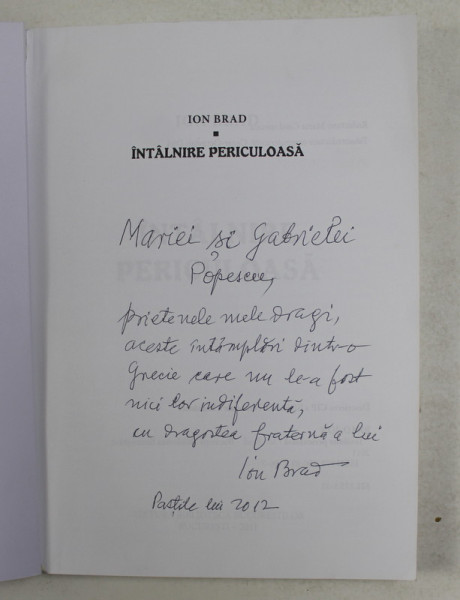 ION BRAD
ÎNTÂLNIRE PERICULOASĂ
Mariei și Gabrielei
Popescu,
prietenele mele dragi,
aceste întâmplări dintr-o
Grecie care nu le-a fost
nici lor indiferentă,
cu dragostea fraternă a lui
Ion Brad
Paștile lui 2012